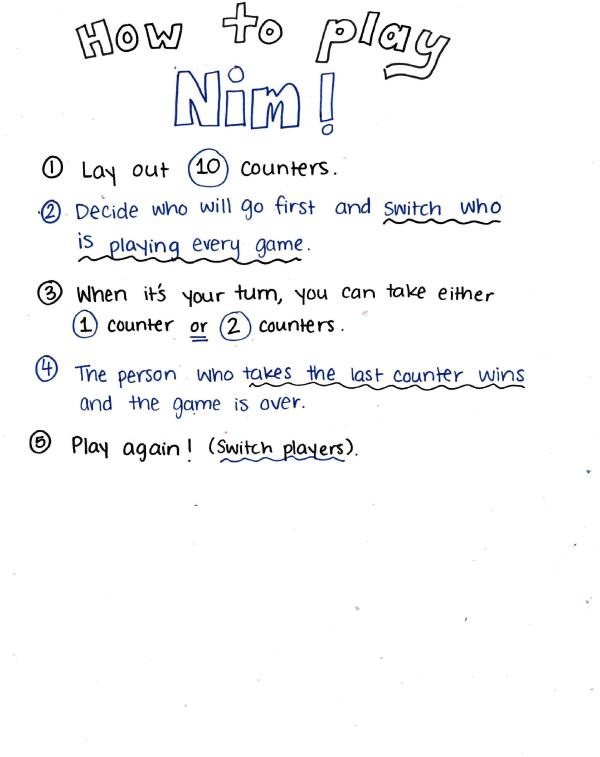 How to play
Nim!
① Lay out 10 counters.
② Decide who will go first and switch who
is playing every game.
③ When it's your turn, you can take either
1 counter or 2 counters.
④ The person who takes the last counter wins
and the game is over.
⑤ Play again! (Switch players).